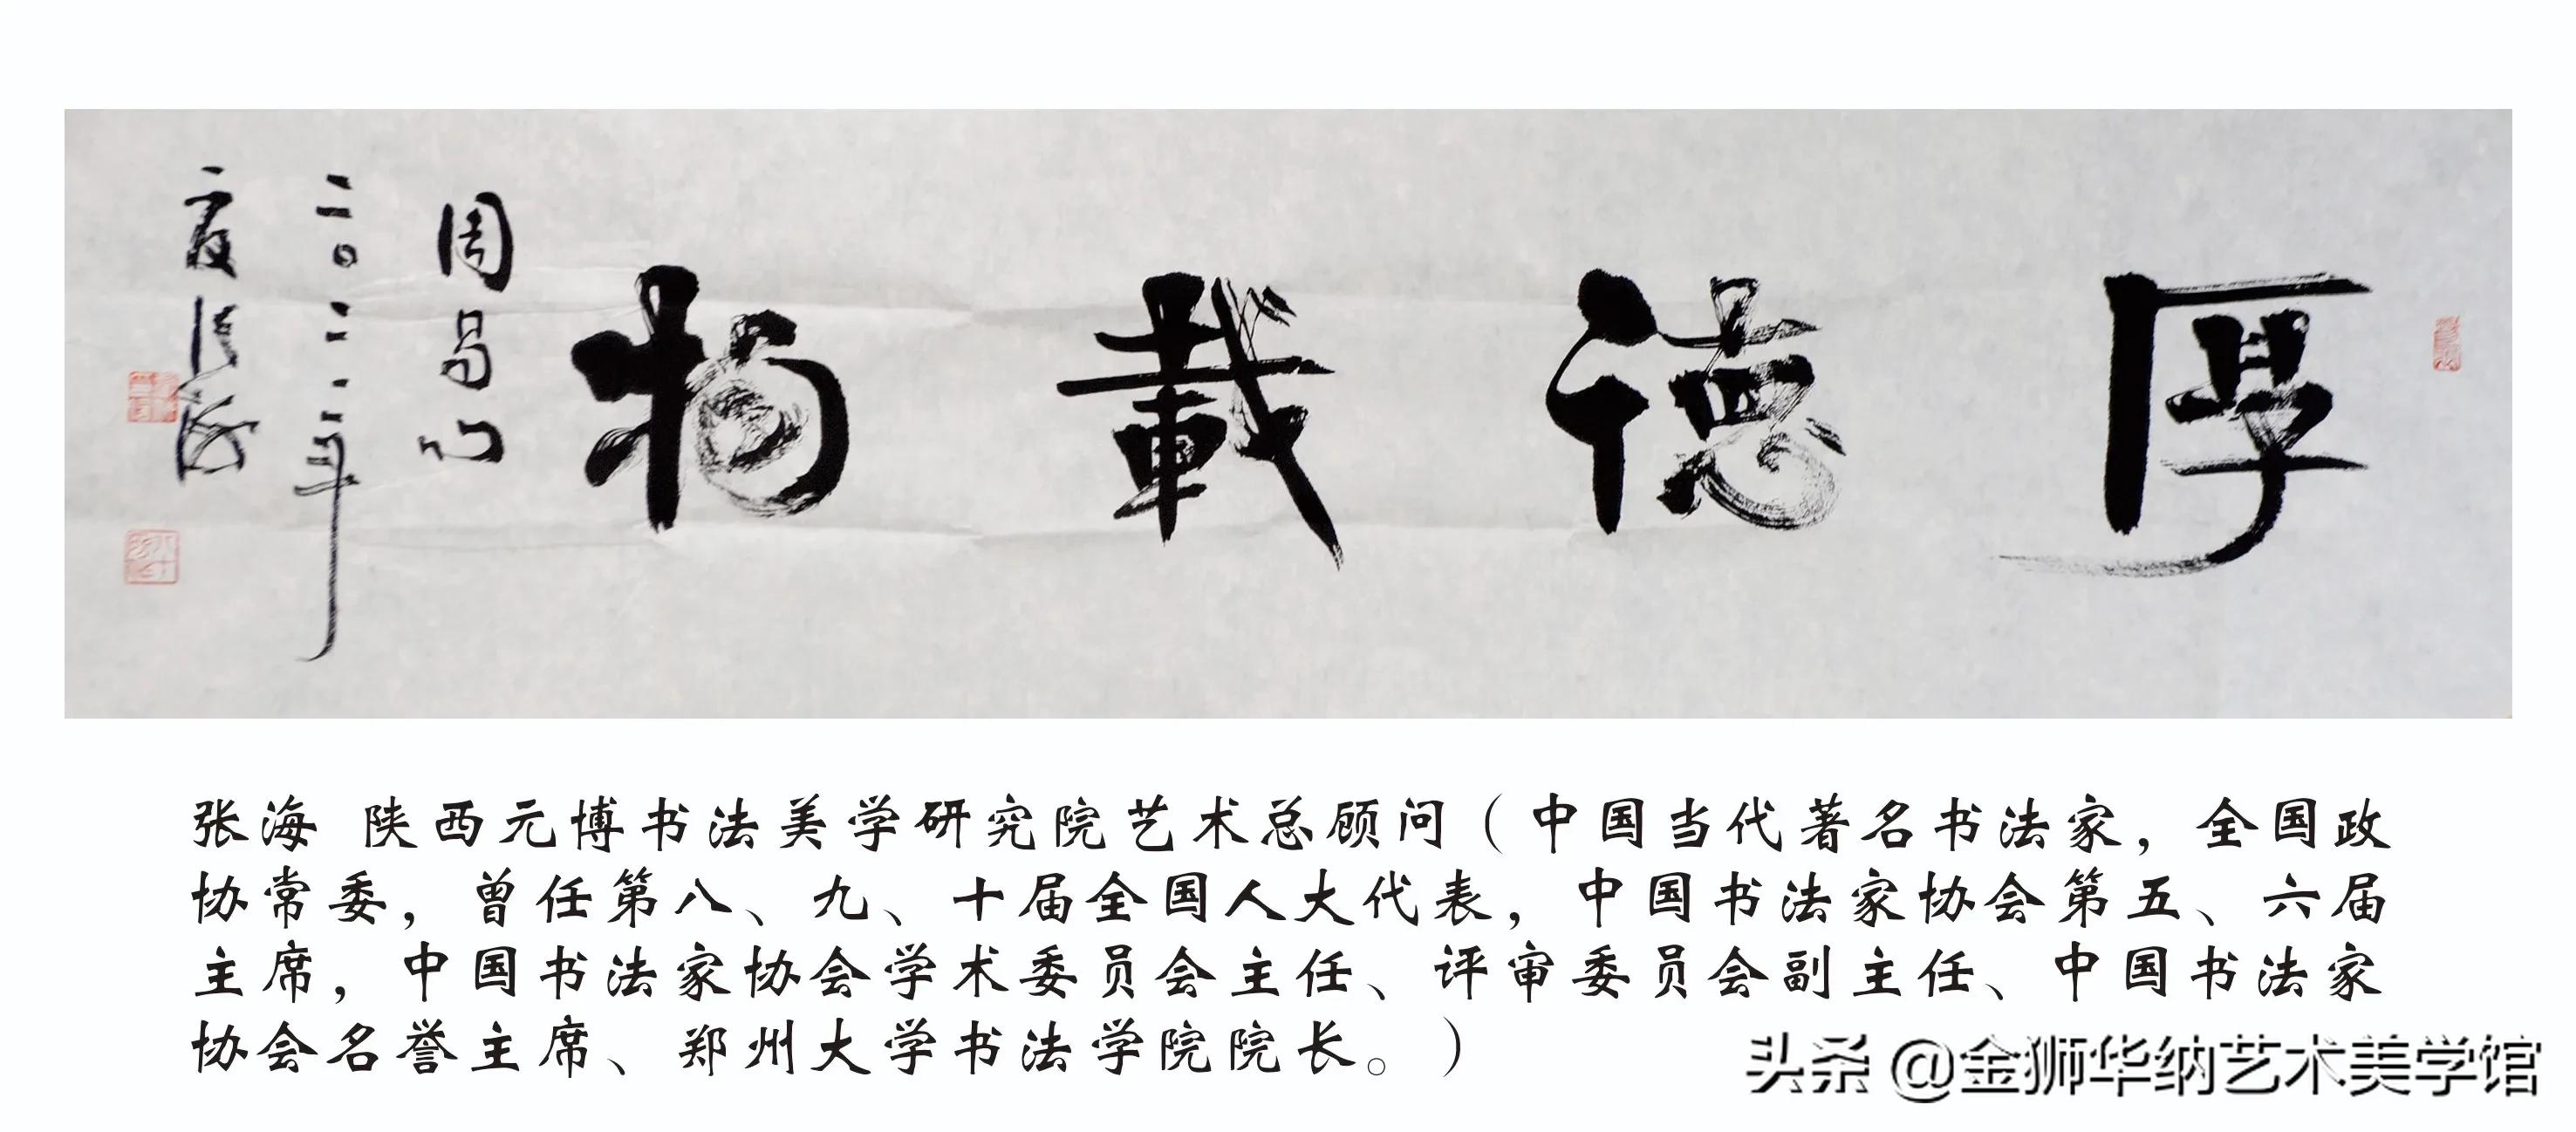 厚德載物
周易句
二〇二二年
夏张海
张海 陕西元博书法美学研究院艺术总顾问（中国当代著名书法家，全国政
协常委，曾任第八、九、十届全国人大代表，中国书法家协会第五、六届
主席，中国书法家协会学术委员会主任、评审委员会副主任、中国书法家
协会名誉主席、郑州大学书法学院院长。）
头条 @金狮华纳艺术美学馆